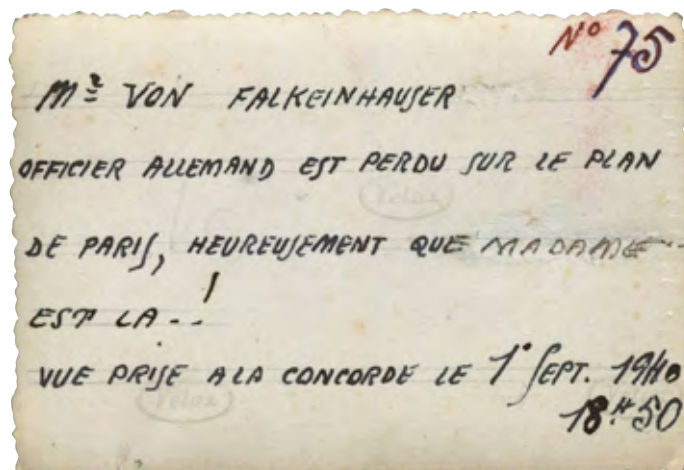 N° 75
Mr VON FALKEINHAUSER
OFFICIER ALLEMAND EST PERDU SUR LE PLAN
Velox
DE PARIS, HEUREUSEMENT QUE MADAME --
EST LA --!
VUE PRISE A LA CONCORDE LE 1° SEPT. 1940
Velox
18.H 50